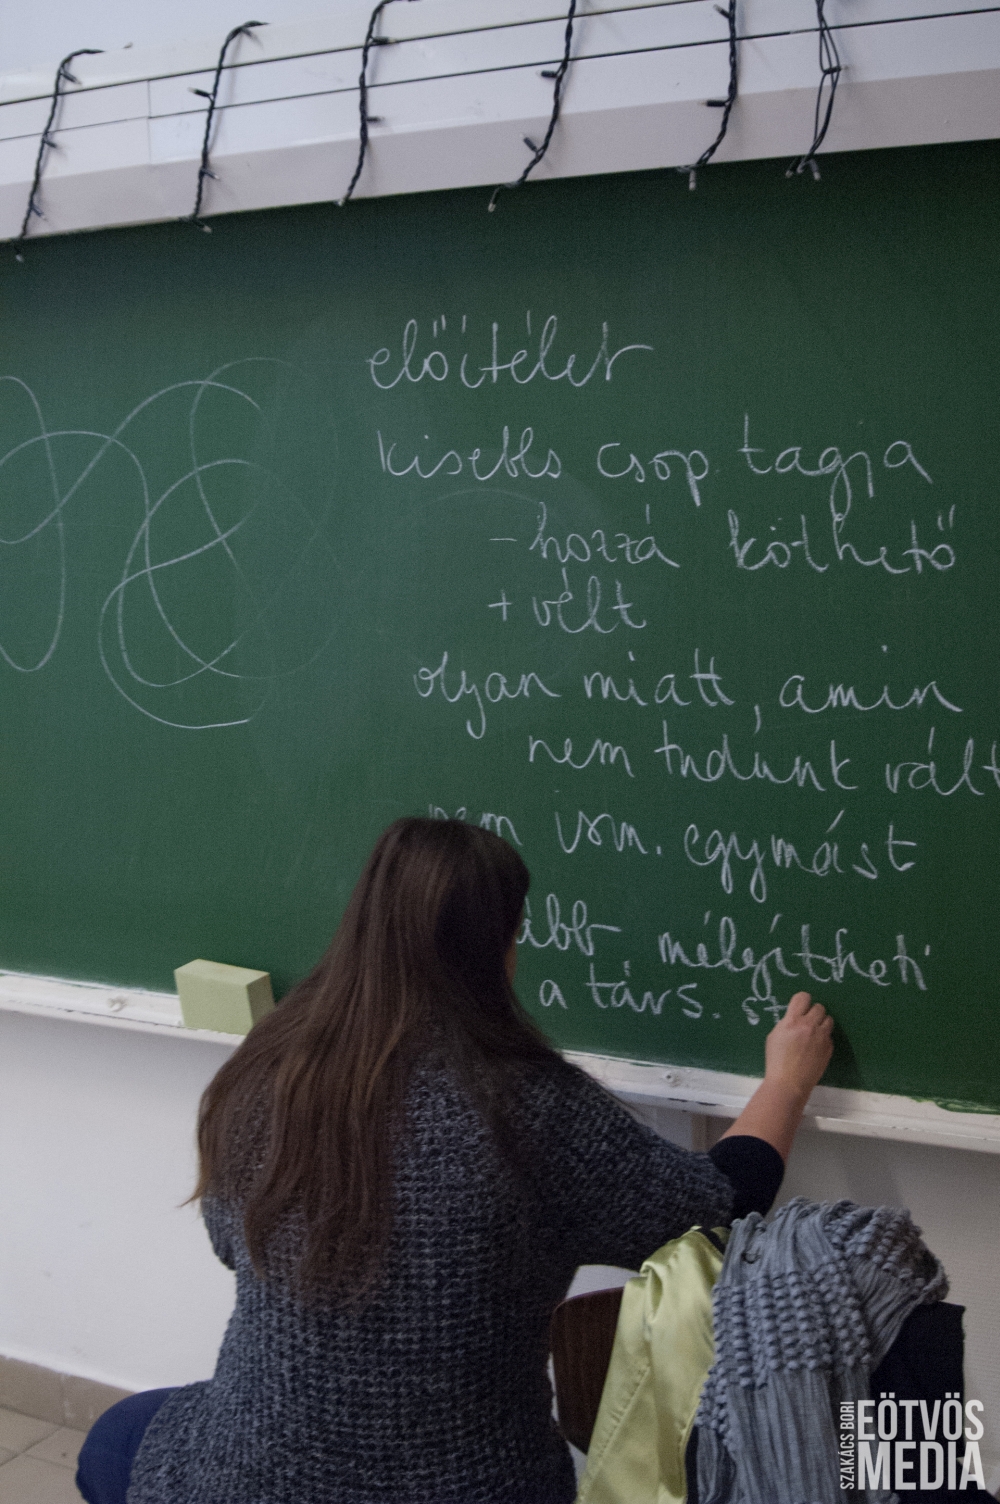 előítélet
kisebbs csop. tagja
- hozzá köthető
+ vélt
olyan miatt, amin
nem tudunk vált
nem ism. egymást
ább mélyítheti
a társ. sz
SZAKÁCS BORI
EÖTVÖS
MEDIA